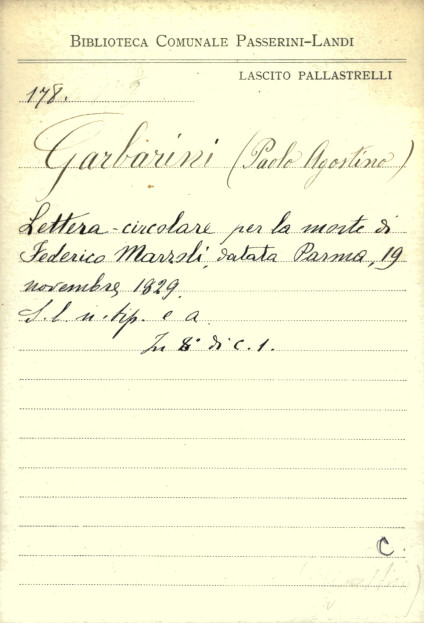 BIBLIOTECA COMUNALE PASSERINI-LANDI
LASCITO PALLASTRELLI
178.
Garbarini (Paolo Agostino)
Lettera-circolare per la morte di
Federico Marzoli, datata Parma, 19
novembre 1829.
S. l. n. tip. e a.
In 8° di c. 1.
C.